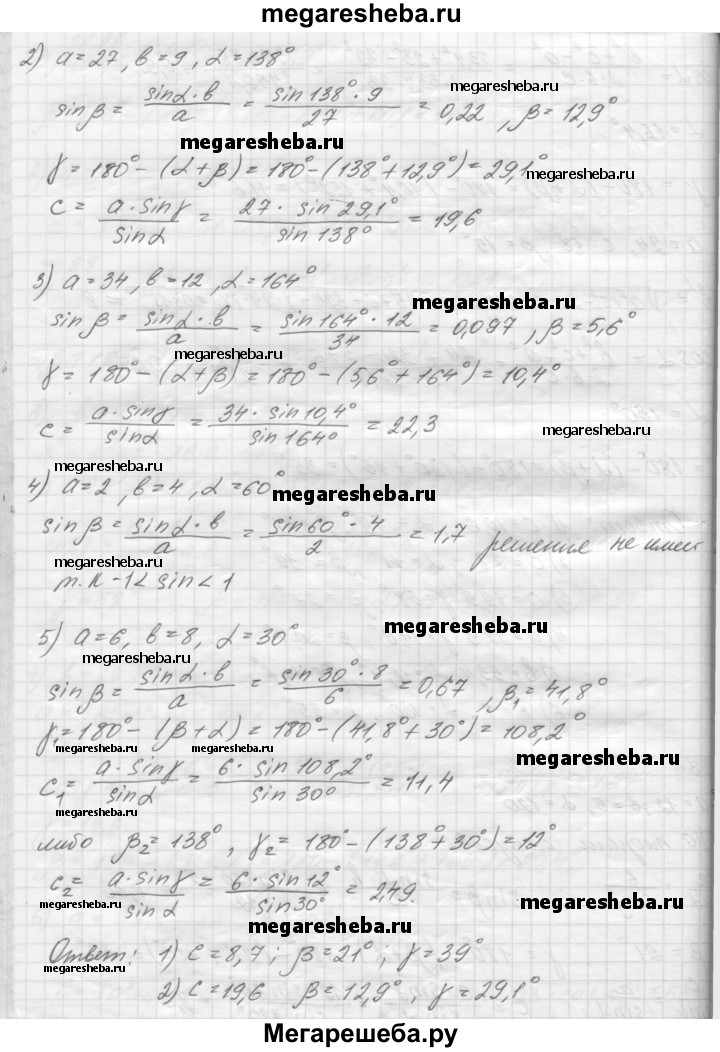 megaresheba.ru
2) a=27, в=9, α=138°
sinβ = sinα·в / a = sin138°·9 / 27 = 0,22, β=12,9°
megaresheba.ru
megaresheba.ru
γ=180°-(α+β)=180°-(138°+12,9°)=29,1°
megaresheba.ru
c = a·sinγ / sinα = 27·sin 29,1° / sin 138° = 19,6
3) a=34, в=12, α=164°
megaresheba.ru
sinβ = sinα·в / a = sin164°·12 / 34 = 0,097, β=5,6°
megaresheba.ru
γ=180°-(α+β)=180°-(5,6°+164°)=10,4°
c= a·sinγ / sinα = 34·sin10,4° / sin164° = 22,3
megaresheba.ru
megaresheba.ru
4) a=2, в=4, α=60°
megaresheba.ru
sinβ = sinα·в / a = sin60°·4 / 2 = 1,7 решения не имеет
megaresheba.ru
т.к -1< sin<1
5) a=6, в=8, α=30°
megaresheba.ru
megaresheba.ru
sinβ= sinα·в / a = sin30°·8 / 6 = 0,67, β₁=41,8°
γ₁=180°-(β+α)=180°-(41,8°+30°)=108,2°
megaresheba.ru megaresheba.ru
megaresheba.ru
c₁= a·sinγ / sinα = 6·sin 108,2° / sin 30° = 11,4
megaresheba.ru
либо β₂=138°, γ₂= 180°-(138°+30°)=12°
c₂= a·sinγ / sin α = 6·sin12° / sin30° = 2,49.
megaresheba.ru
megaresheba.ru
Ответ: 1) c=8,7; β=21°; γ=39°
megaresheba.ru
2) c=19,6 β=12,9°, γ=29,1°
Мегарешеба.ру